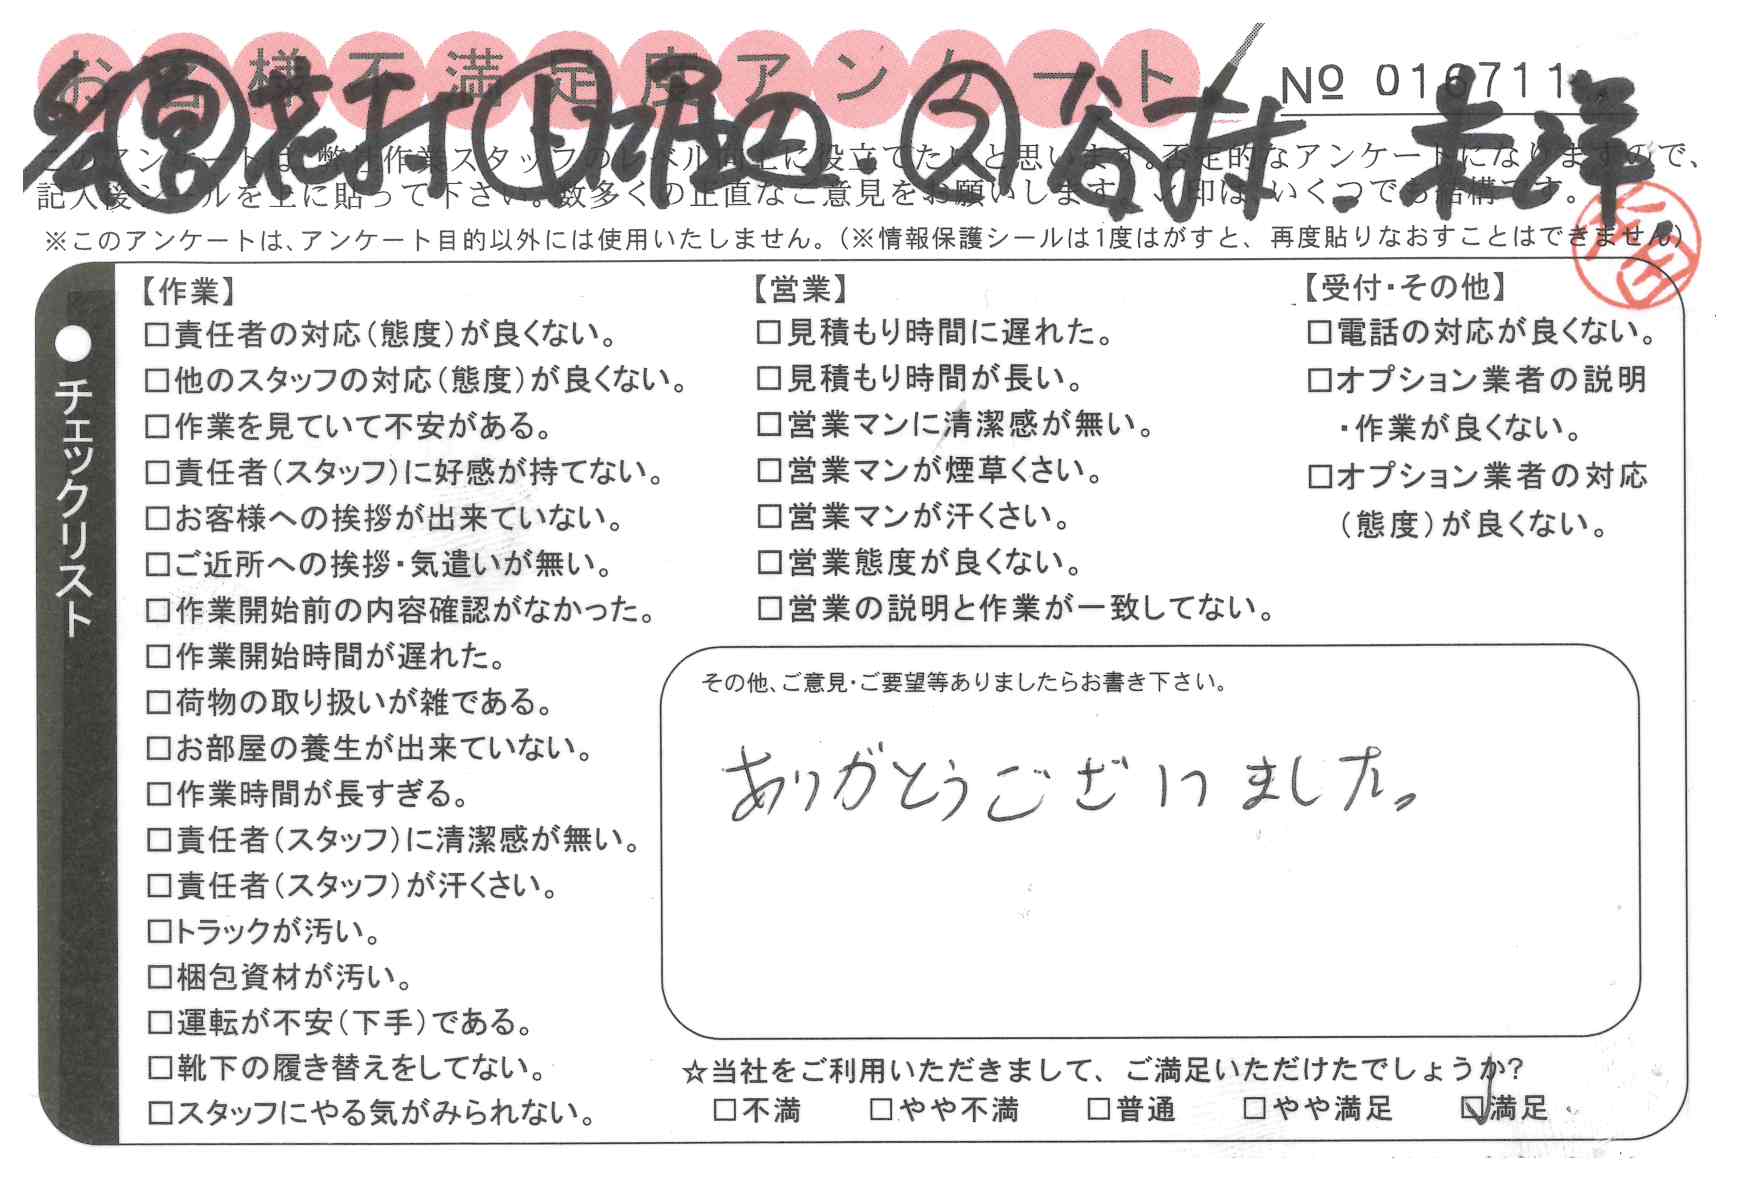 お客様不満足度アンケート
№ 016711
㊂花村 堀辺・ス谷村.末洋
このアンケートは、弊社作業スタッフのレベル向上に役立てたいと思います。否定的なアンケートになりますので、
記入後シールを上に貼って下さい。数多くの正直なご意見をお願いします。レ印は、いくつでも結構です。
※このアンケートは、アンケート目的以外には使用いたしません。(※情報保護シールは1度はがすと、再度貼りなおすことはできません)
●チェックリスト
【作業】
□責任者の対応(態度)が良くない。
□他のスタッフの対応(態度)が良くない。
□作業を見ていて不安がある。
□責任者(スタッフ)に好感が持てない。
□お客様への挨拶が出来ていない。
□ご近所への挨拶・気遣いが無い。
□作業開始前の内容確認がなかった。
□作業開始時間が遅れた。
□荷物の取り扱いが雑である。
□お部屋の養生が出来ていない。
□作業時間が長すぎる。
□責任者(スタッフ)に清潔感が無い。
□責任者(スタッフ)が汗くさい。
□トラックが汚い。
□梱包資材が汚い。
□運転が不安(下手)である。
□靴下の履き替えをしてない。
□スタッフにやる気がみられない。
【営業】
□見積もり時間に遅れた。
□見積もり時間が長い。
□営業マンに清潔感が無い。
□営業マンが煙草くさい。
□営業マンが汗くさい。
□営業態度が良くない。
□営業の説明と作業が一致してない。
【受付・その他】
□電話の対応が良くない。
□オプション業者の説明
・作業が良くない。
□オプション業者の対応
(態度)が良くない。
その他、ご意見・ご要望等ありましたらお書き下さい。
ありがとうございました。
☆当社をご利用いただきまして、ご満足いただけたでしょうか?
□不満 □やや不満 □普通 □やや満足 ☑満足